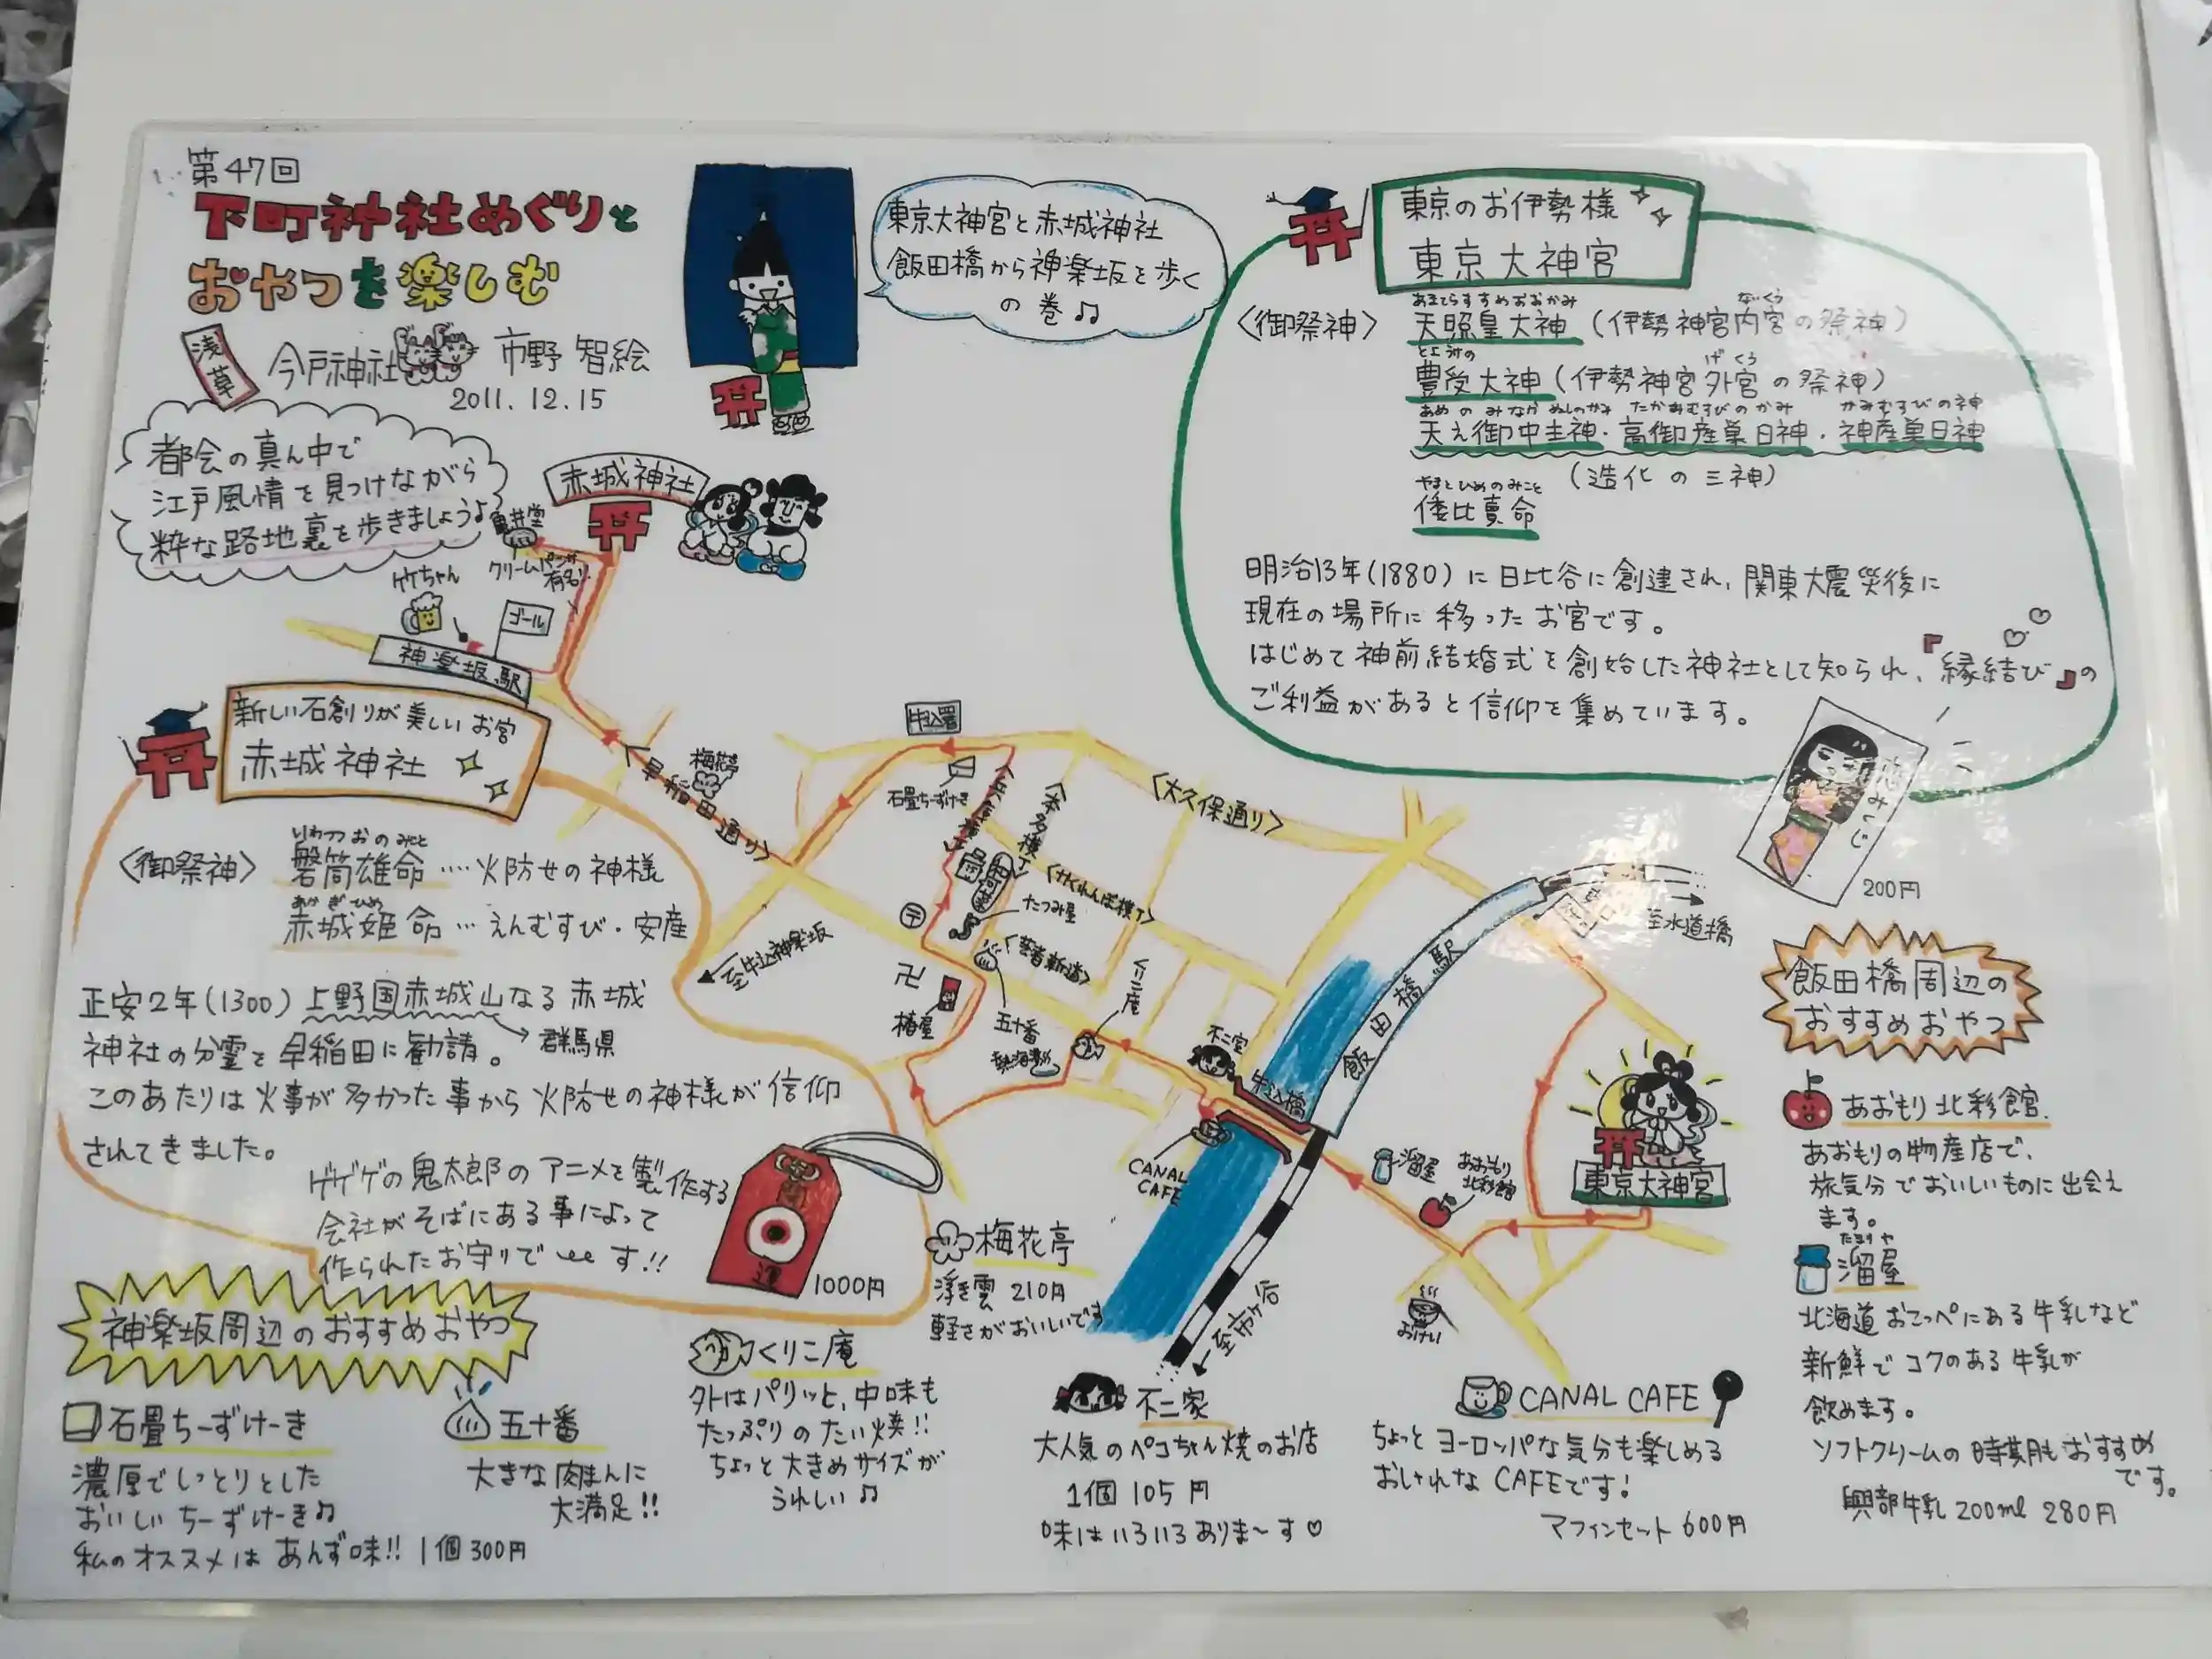 第47回
下町神社めぐりと
おやつを楽しむ
浅草
今戸神社 市野 智絵
2011.12.15
東京大神宮と赤城神社
飯田橋から神楽坂を歩く
の巻♫
都会の真ん中で
江戸風情を見つけながら
粋な路地裏を歩きましょうよ
東京のお伊勢様
東京大神宮
〈御祭神〉
あまてらすすめおおかみ
ないくう
天照皇大神(伊勢神宮内宮の祭神)
とようけの
げくう
豊受大神(伊勢神宮外宮の祭神)
あめのみなかぬしのかみ たかみむすびのかみ かみむすびの神
天之御中主神・高御産巣日神・神産巣日神
(造化の三神)
やまとひめのみこと
倭比賣命
明治13年(1880)に日比谷に創建され、関東大震災後に
現在の場所に移ったお宮です。
はじめて神前結婚式を創始した神社として知られ、『縁結び』の
ご利益があると信仰を集めています。
恋みくじ
200円
赤城神社
亀井堂
クリームパンが
有名!
ゲゲちゃん
ゴール
神楽坂駅
新しい石創りが美しいお宮
赤城神社
〈御祭神〉
いわつつおのみこと
磐筒雄命……火防せの神様
あかぎひめ
赤城姫命…えんむすび・安産
正安2年(1300)上野国赤城山なる赤城
神社の分霊を早稲田に勧請。
群馬県
このあたりは火事が多かった事から火防せの神様が信仰
されてきました。
ゲゲゲの鬼太郎のアニメを製作する
会社がそばにある事によって
作られたお守りでーす!!
運
1000円
梅花亭
〈早稲田通り〉
牛込署
石畳ちーずけーき
〈兵庫横丁〉
〈本多横丁〉
〈大久保通り〉
〈かくれんぼ横丁〉
たつみ屋
〈芸者新道〉
〒
卍
椿屋
五十番
熱海湯
くりこ庵
不二家
牛込橋
飯田橋駅
至水道橋
至牛込神楽坂
CANAL
CAFE
溜屋
あおもり
北彩館
東京大神宮
おけい
至市ヶ谷
飯田橋周辺の
おすすめおやつ
あおもり北彩館
あおもりの物産店で、
旅気分でおいしいものに出会え
ます。
たまりや
溜屋
北海道おこっぺにある牛乳など
新鮮でコクのある牛乳が
飲めます。
ソフトクリームの時期もおすすめ
です。
興部牛乳200ml 280円
神楽坂周辺のおすすめおやつ
石畳ちーずけーき
濃厚でしっとりとした
おいしいちーずけーき♫
私のオススメはあんず味!! 1個300円
五十番
大きな肉まんに
大満足!!
梅花亭
浮き雲 210円
軽さがおいしいです
くりこ庵
外はパリッと、中味も
たっぷりのたい焼!!
ちょっと大きめサイズが
うれしい♫
不二家
大人気のペコちゃん焼のお店
1個105円
味はいろいろありま〜す♡
CANAL CAFE
ちょっとヨーロッパな気分も楽しめる
おしゃれなCAFEです!
マフィンセット600円